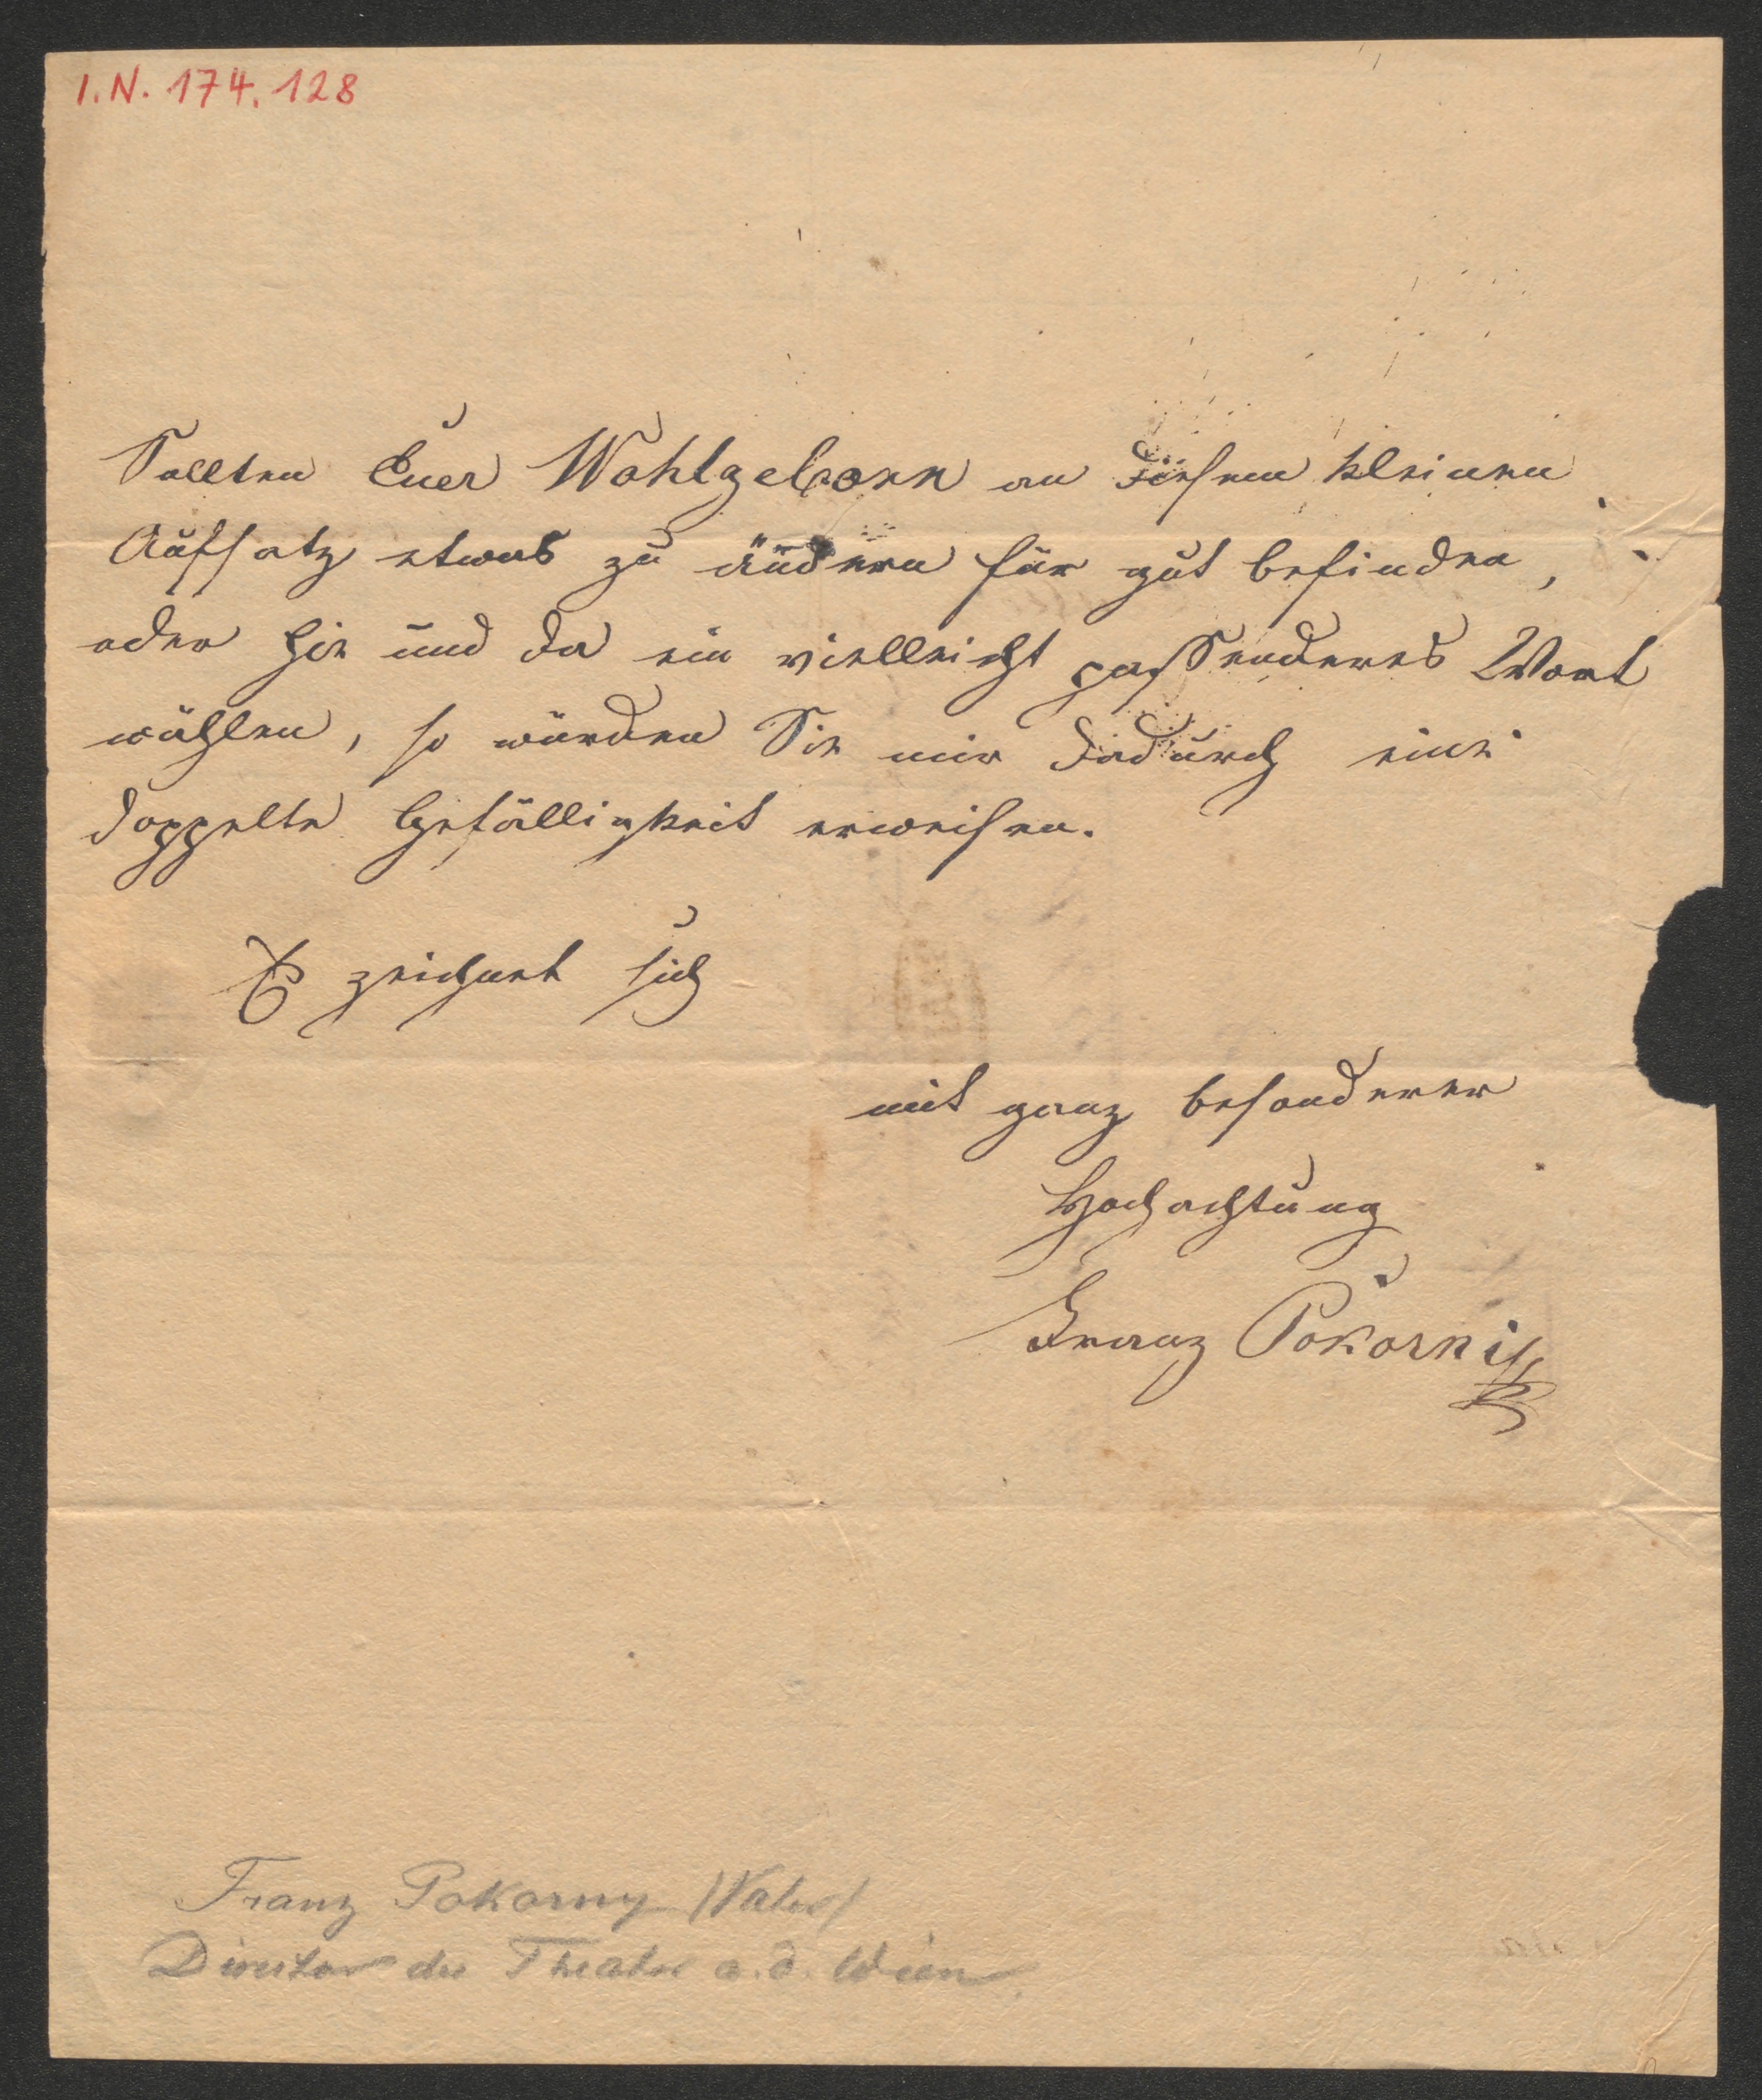 I.N. 174.128
Sollten Euer Wohlgeborn an diesem kleinen
Aufsatz etwas zu ändern für gut befinden,
oder hie und da ein vielleicht passenderes Wort
wählen, so würden Sie mir dadurch eine
doppelte Gefälligkeit erweisen.
Es zeichnet sich
mit ganz besonderer
Hochachtung
Franz Pokorni
Franz Pokorny (Vater)
Director des Theater a. d. Wien